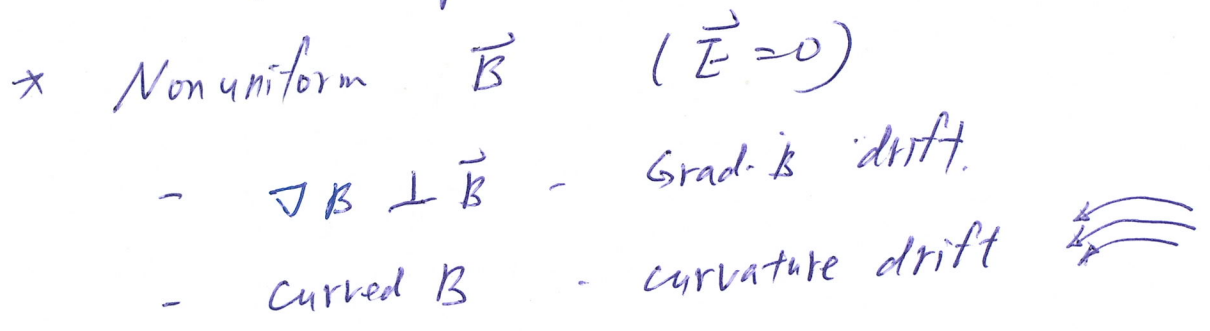 * Nonuniform $\vec{B}$ ($\vec{E}=0$)
- $\nabla B \perp \vec{B}$ - Grad-B drift.
- curved B - curvature drift